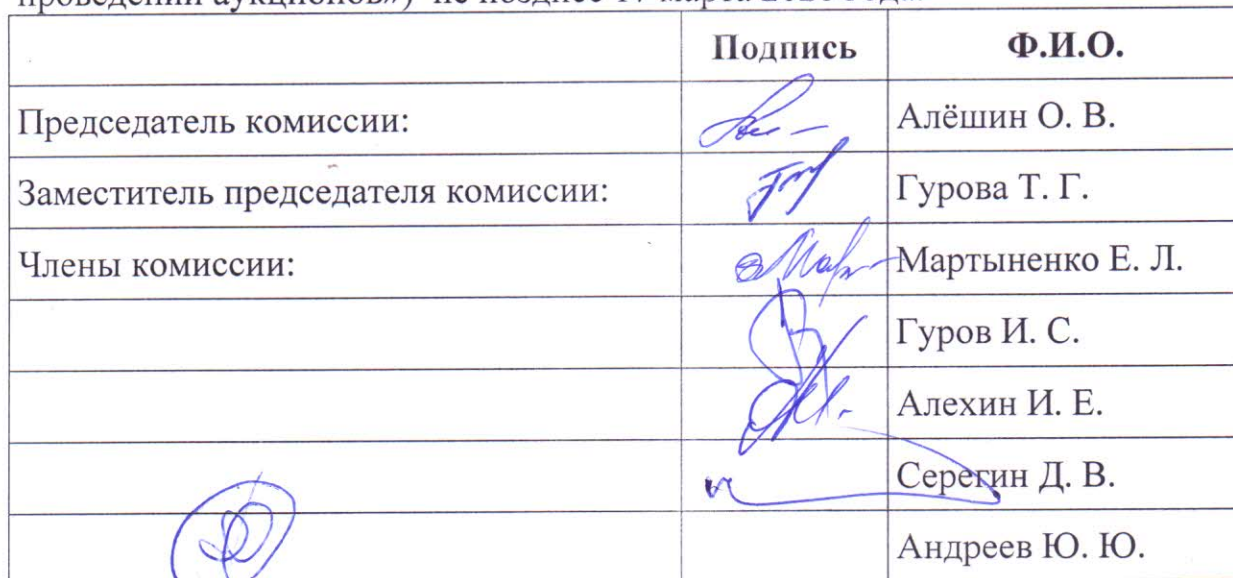 проведении аукционов») не позднее 17 марта
Подпись Ф.И.О.
Председатель комиссии: Алёшин О. В.
Заместитель председателя комиссии: Гурова Т. Г.
Члены комиссии: Мартыненко Е. Л.
Гуров И. С.
Алехин И. Е.
Серегин Д. В.
Андреев Ю. Ю.